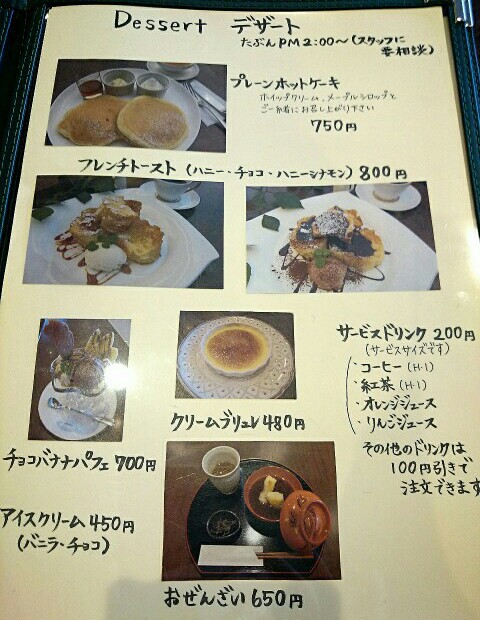 Dessert デザート
たぶんPM2:00〜(スタッフに
要相談)
プレーンホットケーキ
ホイップクリーム、メープルシロップと
ご一緒にお召し上がり下さい
750円
フレンチトースト (ハニー・チョコ・ハニーシナモン) 800円
サービスドリンク 200円
(サービスサイズです)
・コーヒー (H・I)
・紅茶 (H・I)
・オレンジジュース
・りんごジュース
その他のドリンクは
100円引きで
注文できます
クリームブリュレ 480円
チョコバナナパフェ 700円
アイスクリーム 450円
(バニラ・チョコ)
おぜんざい 650円